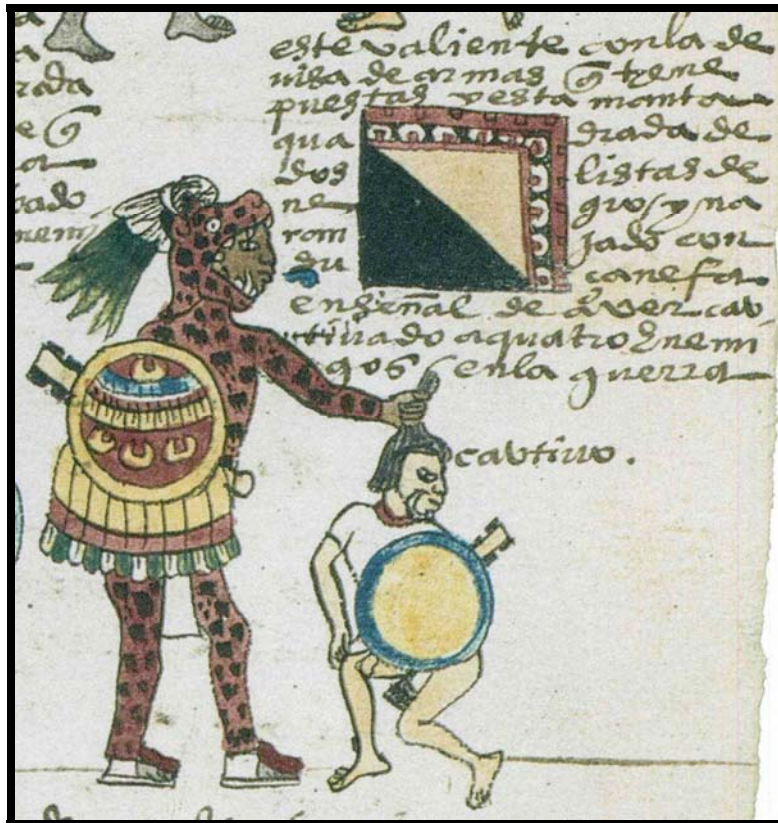 rada
e q̃
bado
nemi
este valiente con la de
uisa de armas q̃ tyene
puestas y esta manta
qua drada de
dos listas de
ne gro / y na
ran jado con
su canefa
en señal de aver cav
tiuado a quatro enemi
gos en la guerra
cavtiuo.